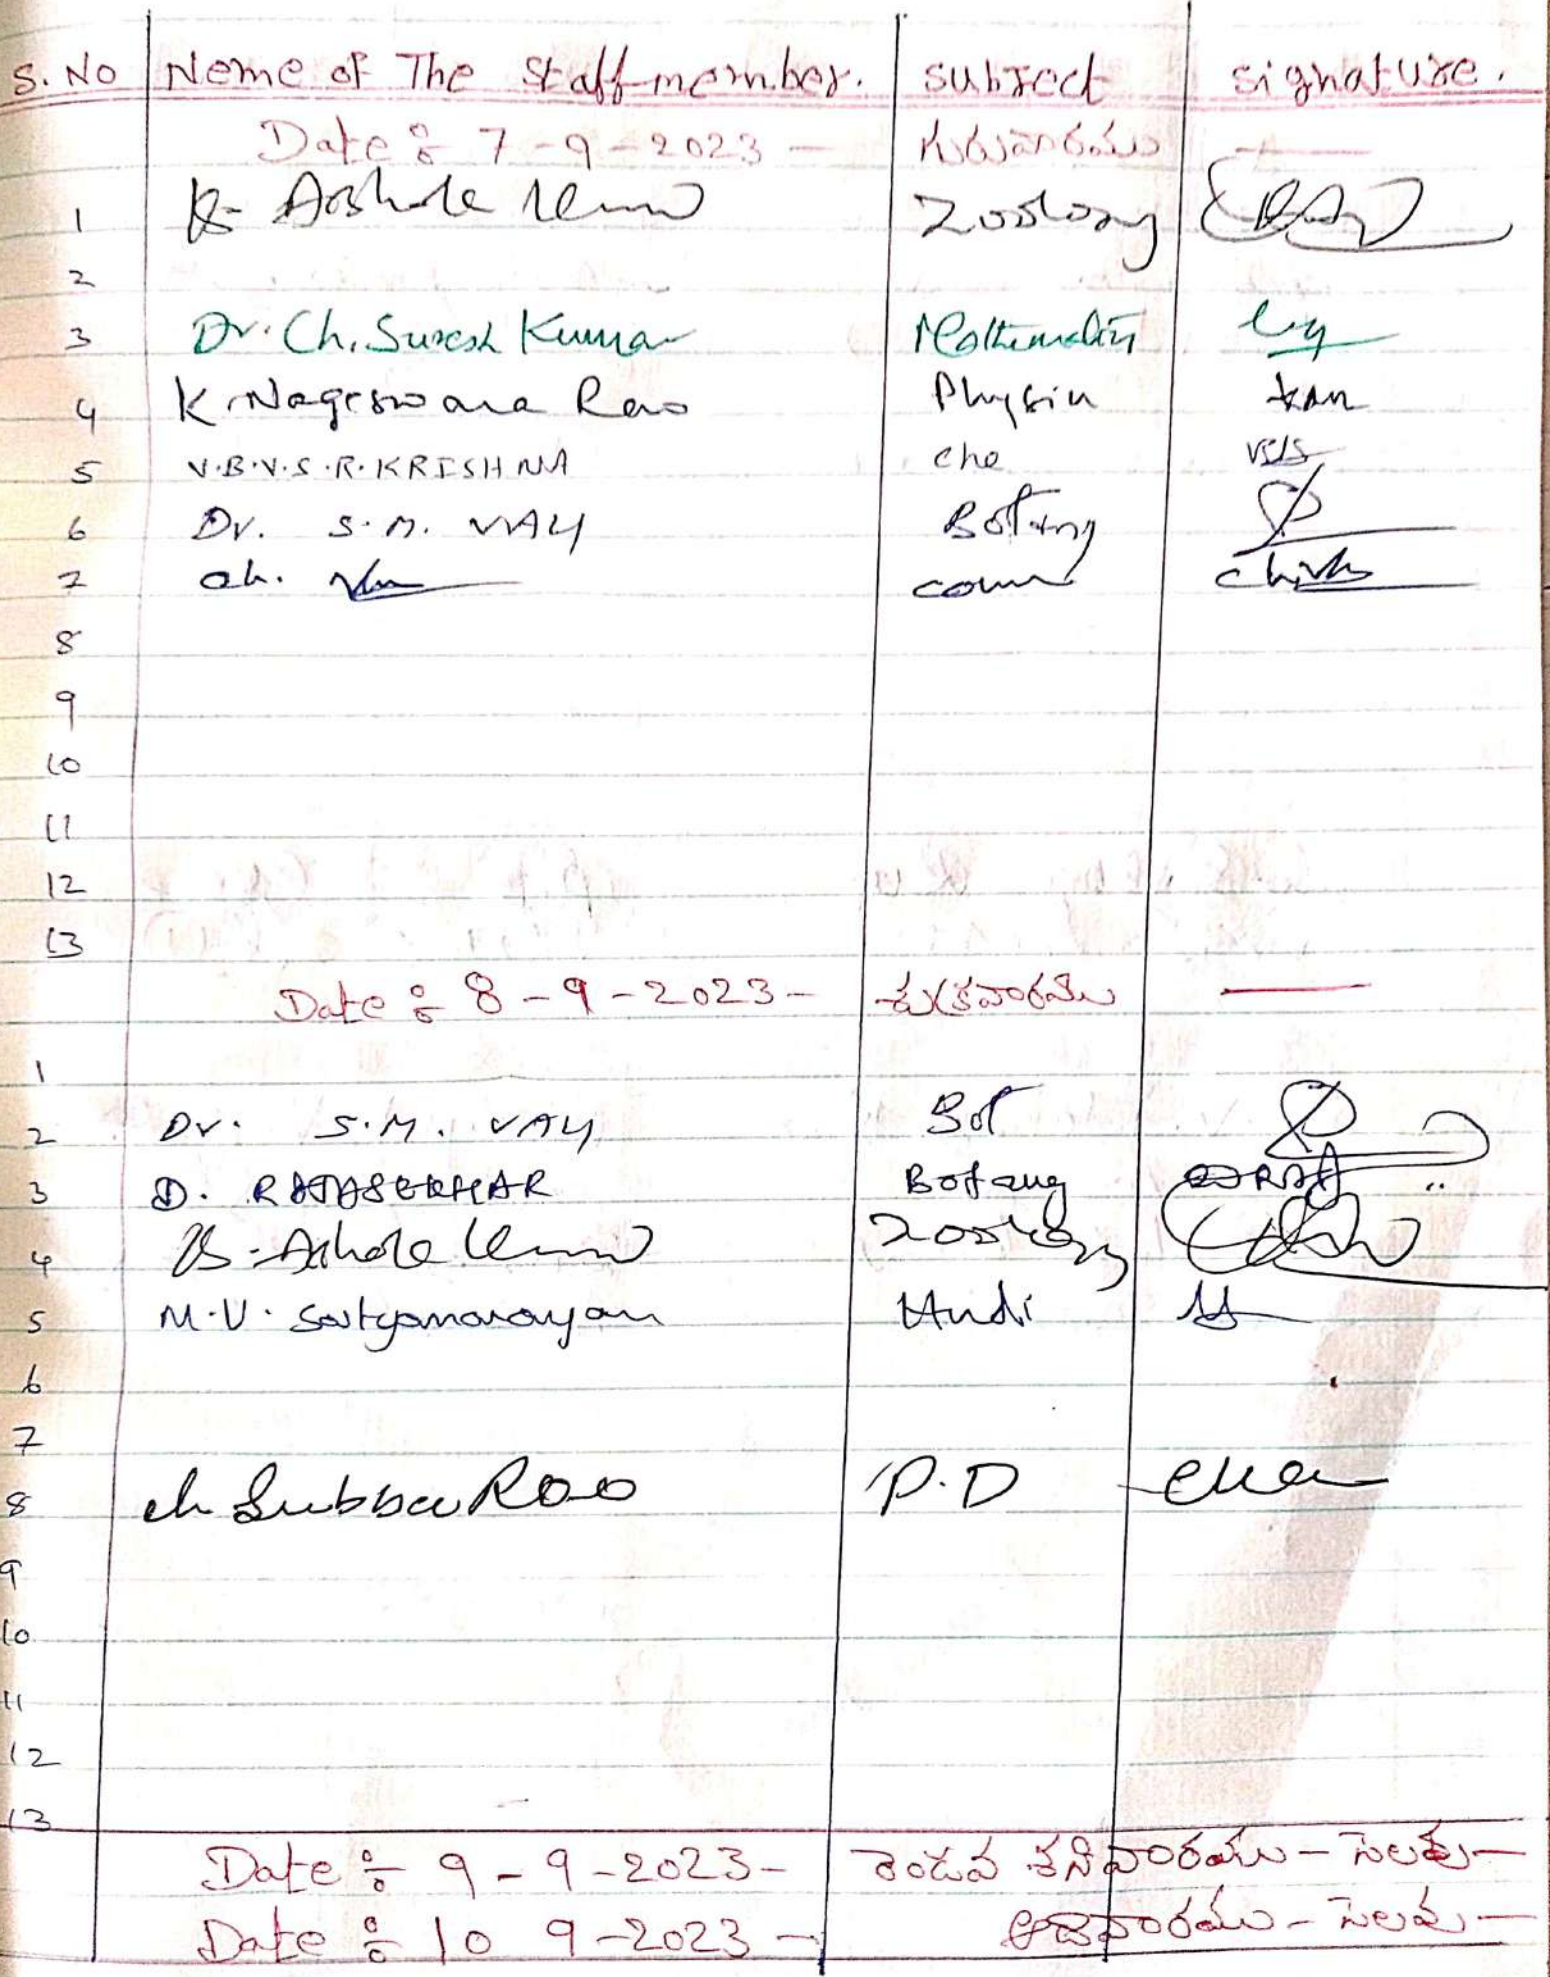 S. No Neme of The Staff member. subject signature.
Date : 7-9-2023 - గురువారము
1 K. Ashok Kumar Zoology
2
3 Dr. Ch. Suresh Kumar Mathematics
4 K. Nageswara Rao Physics
5 V.B.V.S.R. KRISHNA che
6 Dr. S.M. VALI Botany
7 ch.
8
9
10
11
12
13
Date : 8-9-2023- శుక్రవారము
1
2 Dr. S.M. VALI Bot
3 D. RAJASEKHAR Botany
4 Ashok Kumar Zoology
5 M.V. Satyanarayan Hindi
6
7
8 ch Subba Rao P.D
9
10
11
12
13
Date : 9-9-2023- రెండవ శనివారము - సెలవు -
Date : 10 9-2023 - ఆదివారము - సెలవు -